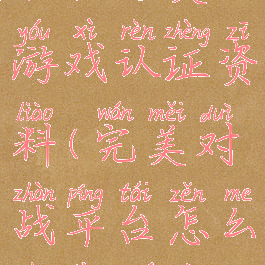 yóu xì rèn zhèng zī
游戏认证资
liào wán měi duì
料(完美对
zhàn píng tái zěn me
战平台怎么